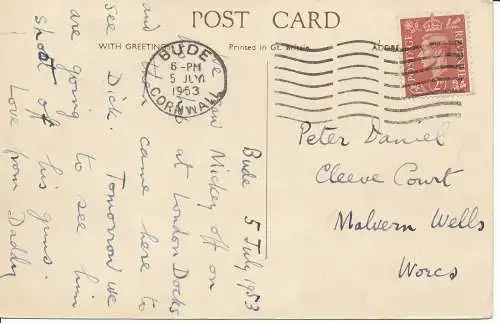 POST CARD
WITH GREETINGS
Printed in Gt. Britain
ADDRESS
BUDE
6-PM
5 JLY
1953
CORNWALL
POSTAGE
REVENUE
Bude 5 July 1953
Mickey off on
at London Docks
and then came here to
see Dick. Tomorrow we
are going to see him
shoot off his guns.
Love from Daddy
Peter Daniel
Cleeve Court
Malvern Wells
Worcs